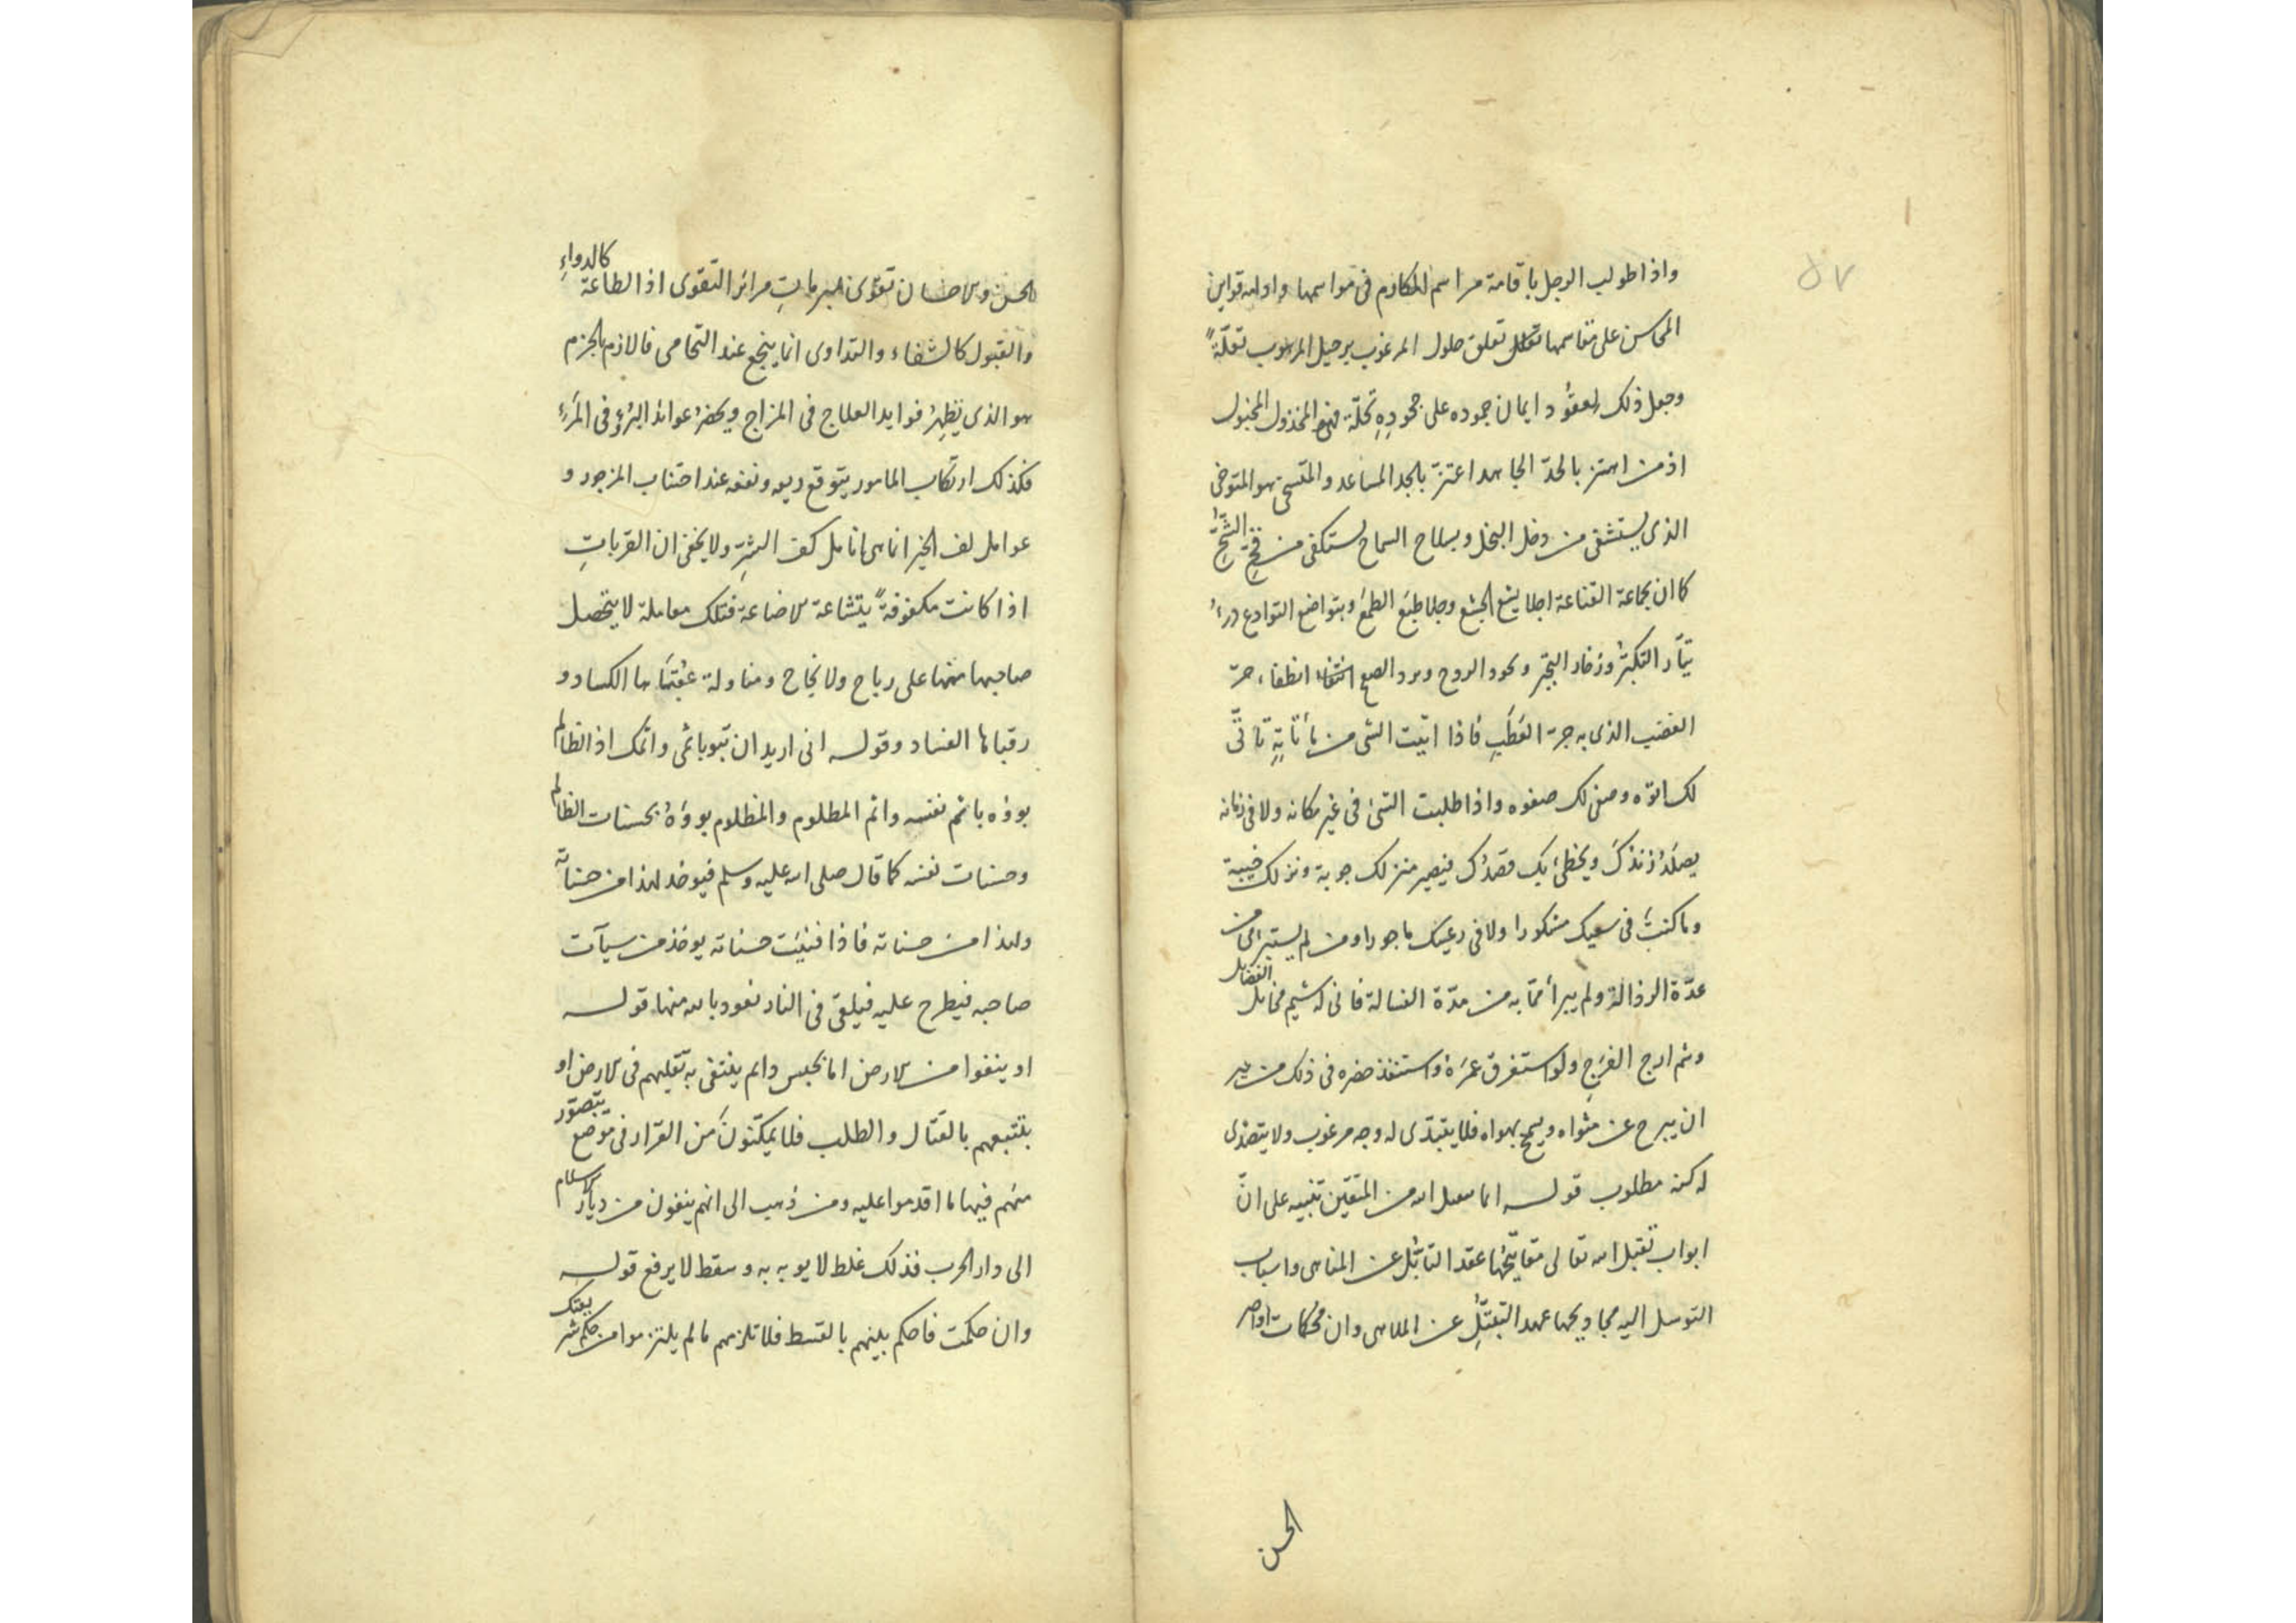 ٥٧
واذا طولب الرجل باقامة مراسم المكارم فى مواسمها وادامة قوانين
المحاسن على مقاسمها تعلق حلول المرغوب برحيل المرهوب تعلّةً
وجعل ذلك لعقود ايمان جموده على جحوده تحلّة المخذول المخبول
اذ من اهتز بالجدّ الجاهد اعتزّ بالجد المساعد والمتسمى هو المتوخى
الذى يستشفى من دخل البخل وبسلاح السماح يستكفى من الشحّ
كما ان بمجاعة القناعة اجلا يشع الجشع وجلا طبَع الطمَع وبتواضع التوادع درء
تيّار التكبّر وزخار التجبّر وبرد انطفاء حرّ
الغضب الذى به جرة العَطَبِ فاذا اتيت الشى من مأتاتِهِ تأتّى
لك اتوّه وصفى لك صفوه واذا طلبت الشئ فى غير مكانه ولا فى زمانه
يصلَدُ زندُكَ ويخطئ بك قصدُك فيصير منزلك جوبة ونزلك خيبة
وما كنتَ فى سعيك مشكورا ولا فى رعيك ماجورا ومن لم يستبرا من
عدّة الرذالة ولم يبرأ ممّا به من مدّة الفسالة فانى له شيم مخايل الفضايل
وشم ارج الفرَج ولو استغرق عمرَه واستنفذ حضره فى ذلك من غير
ان يبرح عن مثواه ويسمح بهواه فلا يتبدّى له وجه مرغوب ولا يتصدّى
له كنه مطلوب قوله انما يتقبل الله من المتقين تنبيه على انّ
ابواب تقبل الله تعالى مفاتيحُها عقد التأثّل عن المناهى واسباب
التوسل اليه مجاديحها عهد التبتّلِ عن الملاهى وان محكمات اواصر
الحسن
الحسن والاحسان تقوى بمبرمات مرائر التقوى اذ الطاعة كالدواءِ
والقبول كالشفاء والتداوى انما ينجع عند التحامى فالازم بالجزم
هو الذى يظهِرُ فوايد العلاج فى المزاج ويحضرُ عوائد البُرْءِ فى المَرْءِ
فكذلك ارتكاب المامور يتوقع ريعه ونفعه عند اجتناب المزجور و
عوامل لف الخير انما هى انامل كف الشرِّ ولا يخفى ان القرباتِ
اذا كانت مكفوفةً بتشاعة الاضاعة فتلك معاملة لا يتحصل
صاحبها منها على رباح ولا نجاح ومناولة عُقباها الكساد و
رقباها الفساد وقوله انى اريد ان تبوء باثمى واثمك اذ الظالم
بوؤه باثم نفسه واثم المظلوم والمظلوم بوؤهُ بحسنات الظالم
وحسنات نفسه كما قال صلى الله عليه وسلم فيوخذ لهذا من حسناته
ولهذا من حسناته فاذا فنيَت حسناته يوخذ من سيآت
صاحبه فيطرح عليه فيلقى فى النار نعوذ بالله منها قوله
او ينفوا من الارض اما بحبس دايم ينتفى به تقلبهم فى الارض او
بتتبعهم بالقتال والطلب فلا يمكنونَ من القرار فى موضع يتصوّر
منهم فيها ما اقدموا عليه ومن ذهب الى انهم ينفون من ديار الاسلام
الى دار الحرب فذلك غلط لا يوبه به وسقط لا يرفع قوله
وان حكمت فاحكم بينهم بالقسط فلا تلزمهم ما لم يلتزموا من حكم شريعتك